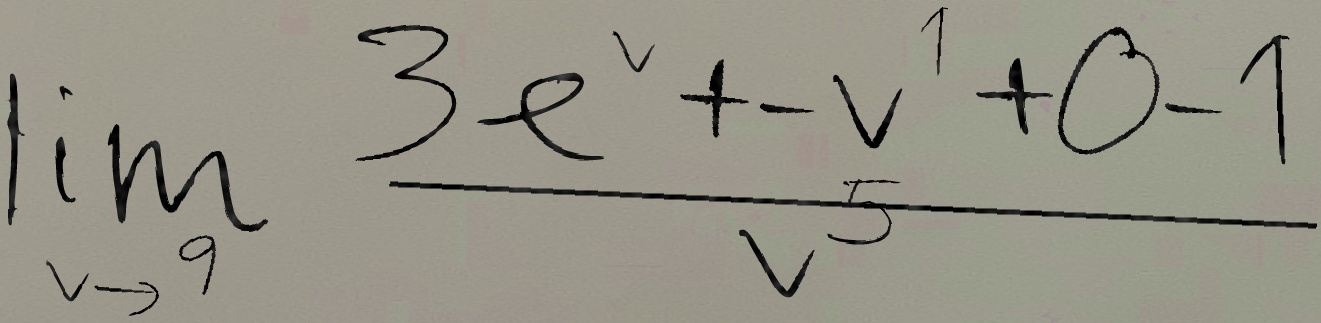 \lim_{v \to 9} \frac{3e^{v} + -v^{1} + 0 - 1}{v^{5}}